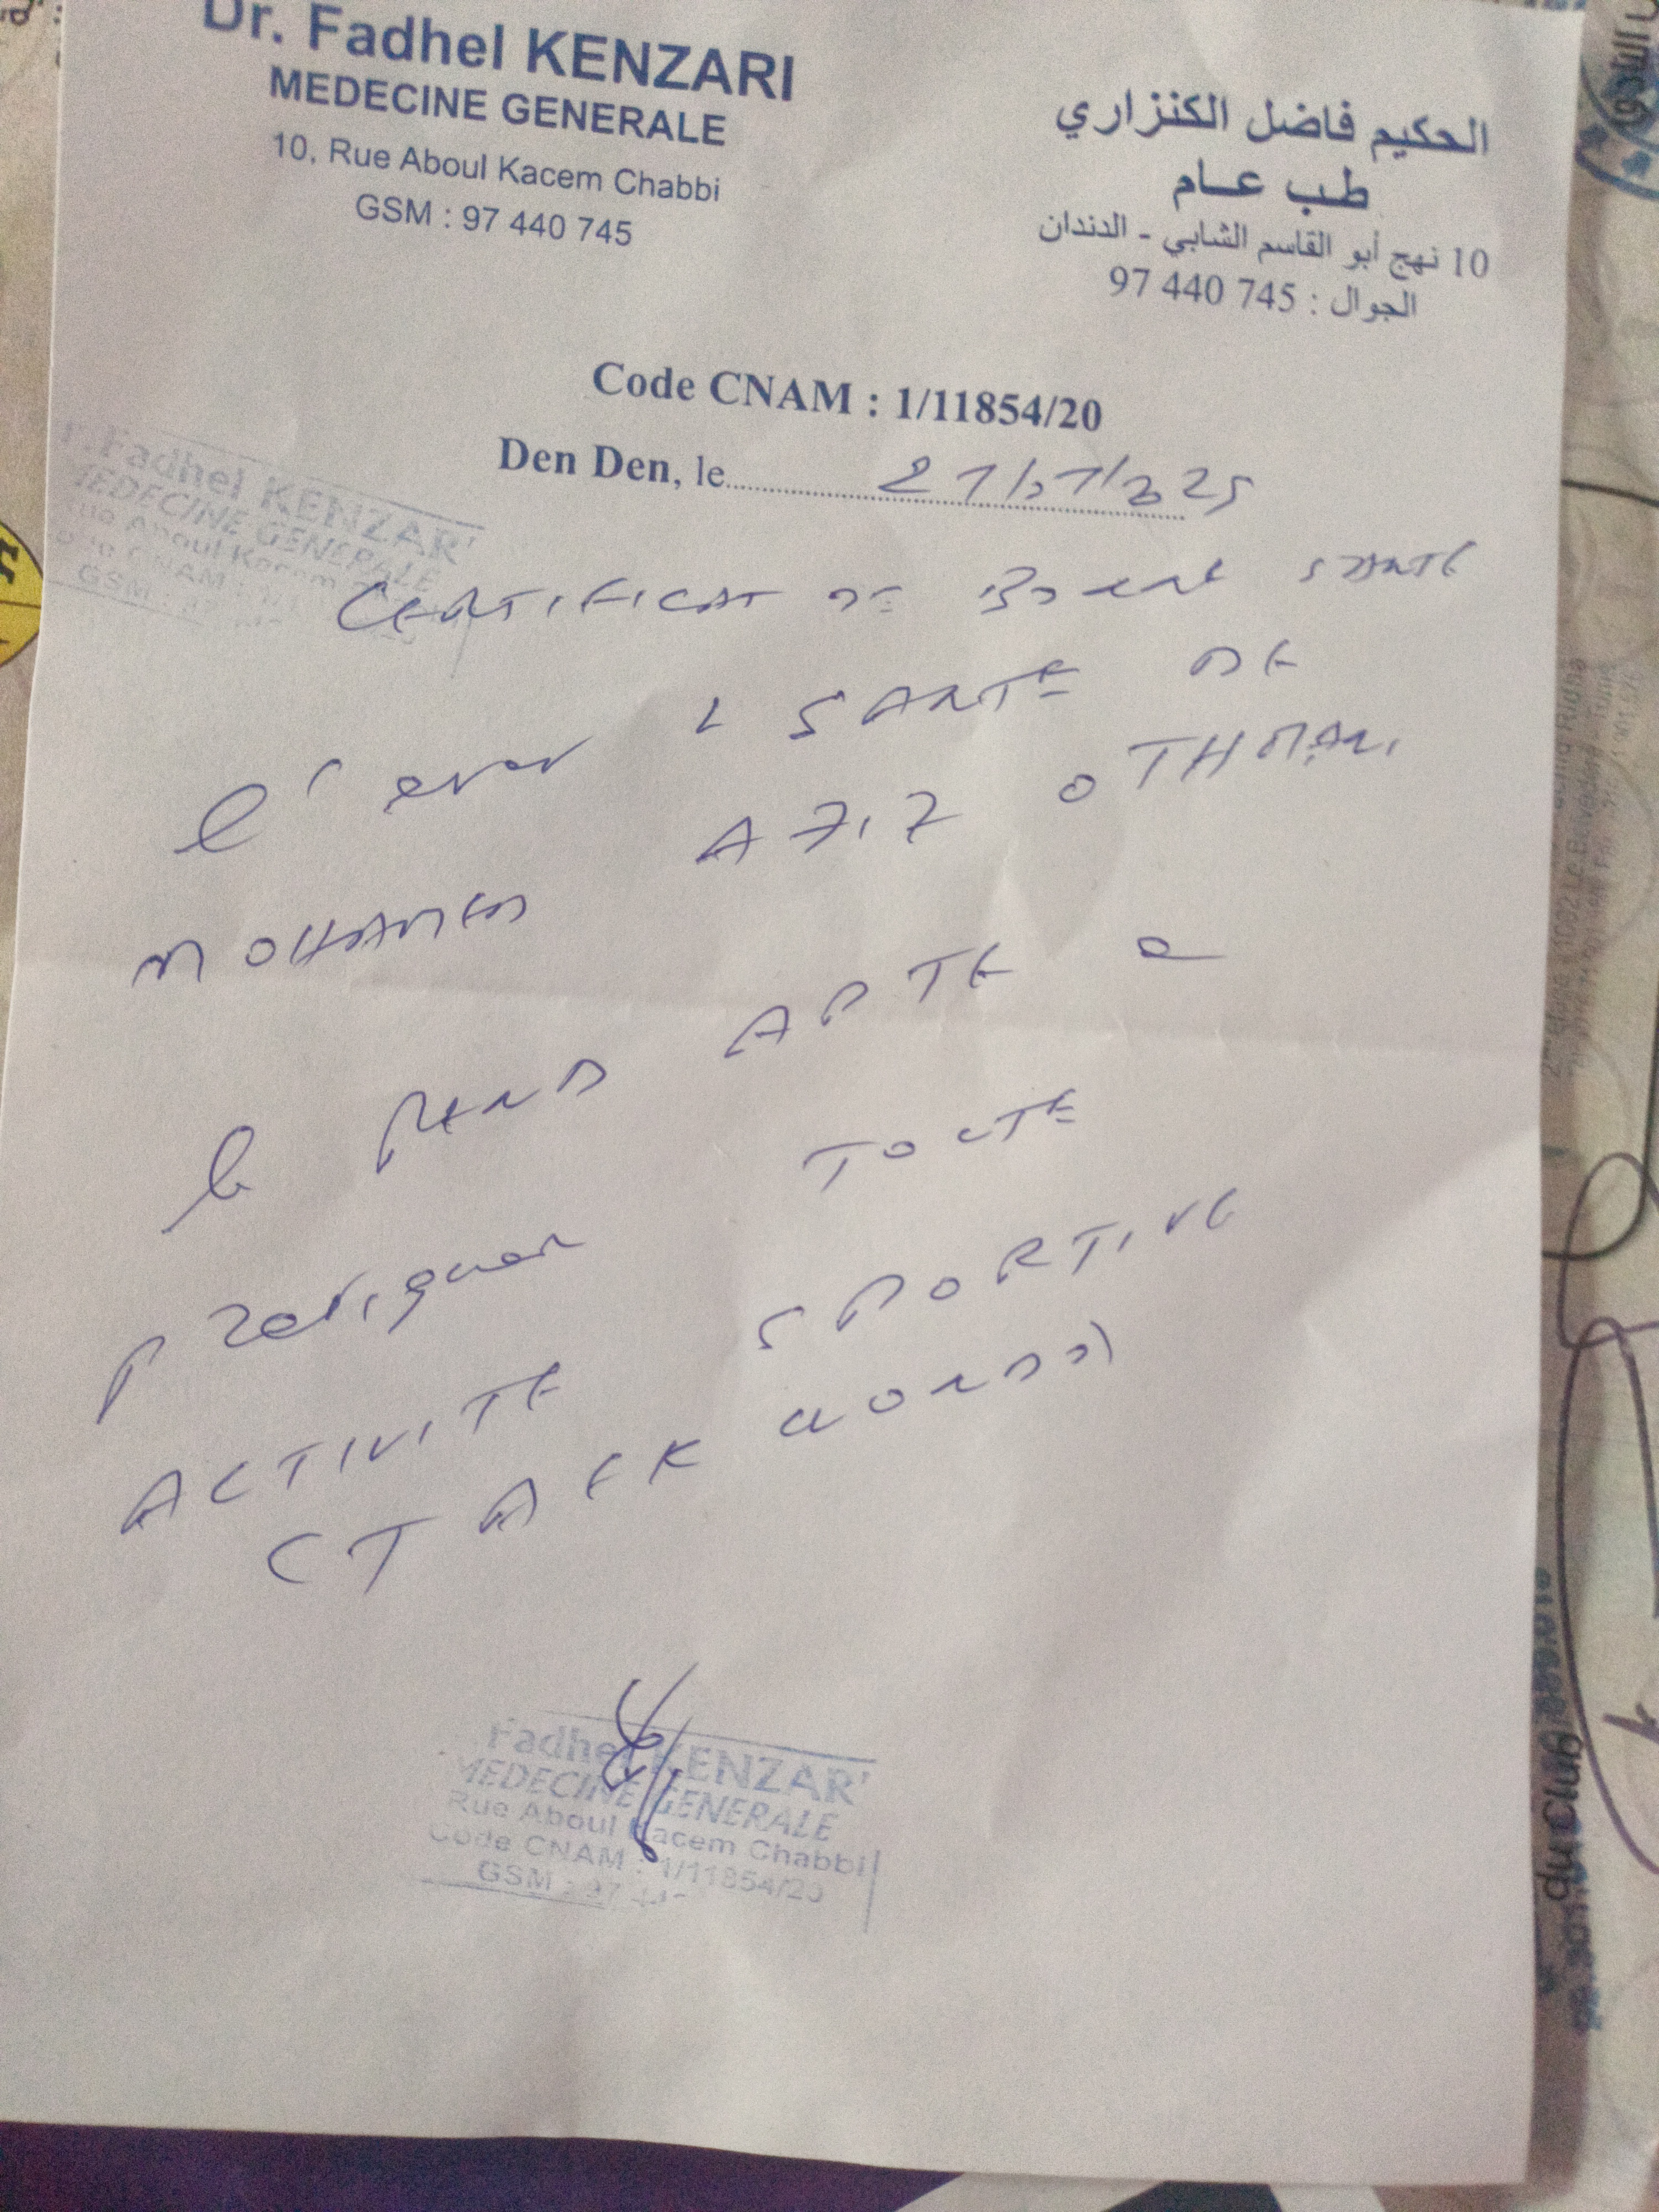 Dr. Fadhel KENZARI
MEDECINE GENERALE
10, Rue Aboul Kacem Chabbi
GSM : 97 440 745
الحكيم فاضل الكنزاري
طب عام
10 نهج أبو القاسم الشابي - الدندان
الجوال : 97 440 745
Code CNAM : 1/11854/20
Den Den, le
Fadhel KENZAR
MEDECINE GENERALE
Rue Aboul
CNAM :
GSM :
CERTIFICAT DE BONNE SANTE
l' SANTE DE
MOHAMED AZIZ OTHMANI
le REND APTE a
pratiquer TOUTE
ACTIVITE SPORTIVE
(TAEKWONDO)
Fadhel KENZAR
MEDECINE GENERALE
Rue Aboul Kacem Chabbi
Code CNAM : 1/11854/20
GSM : 97
du Club